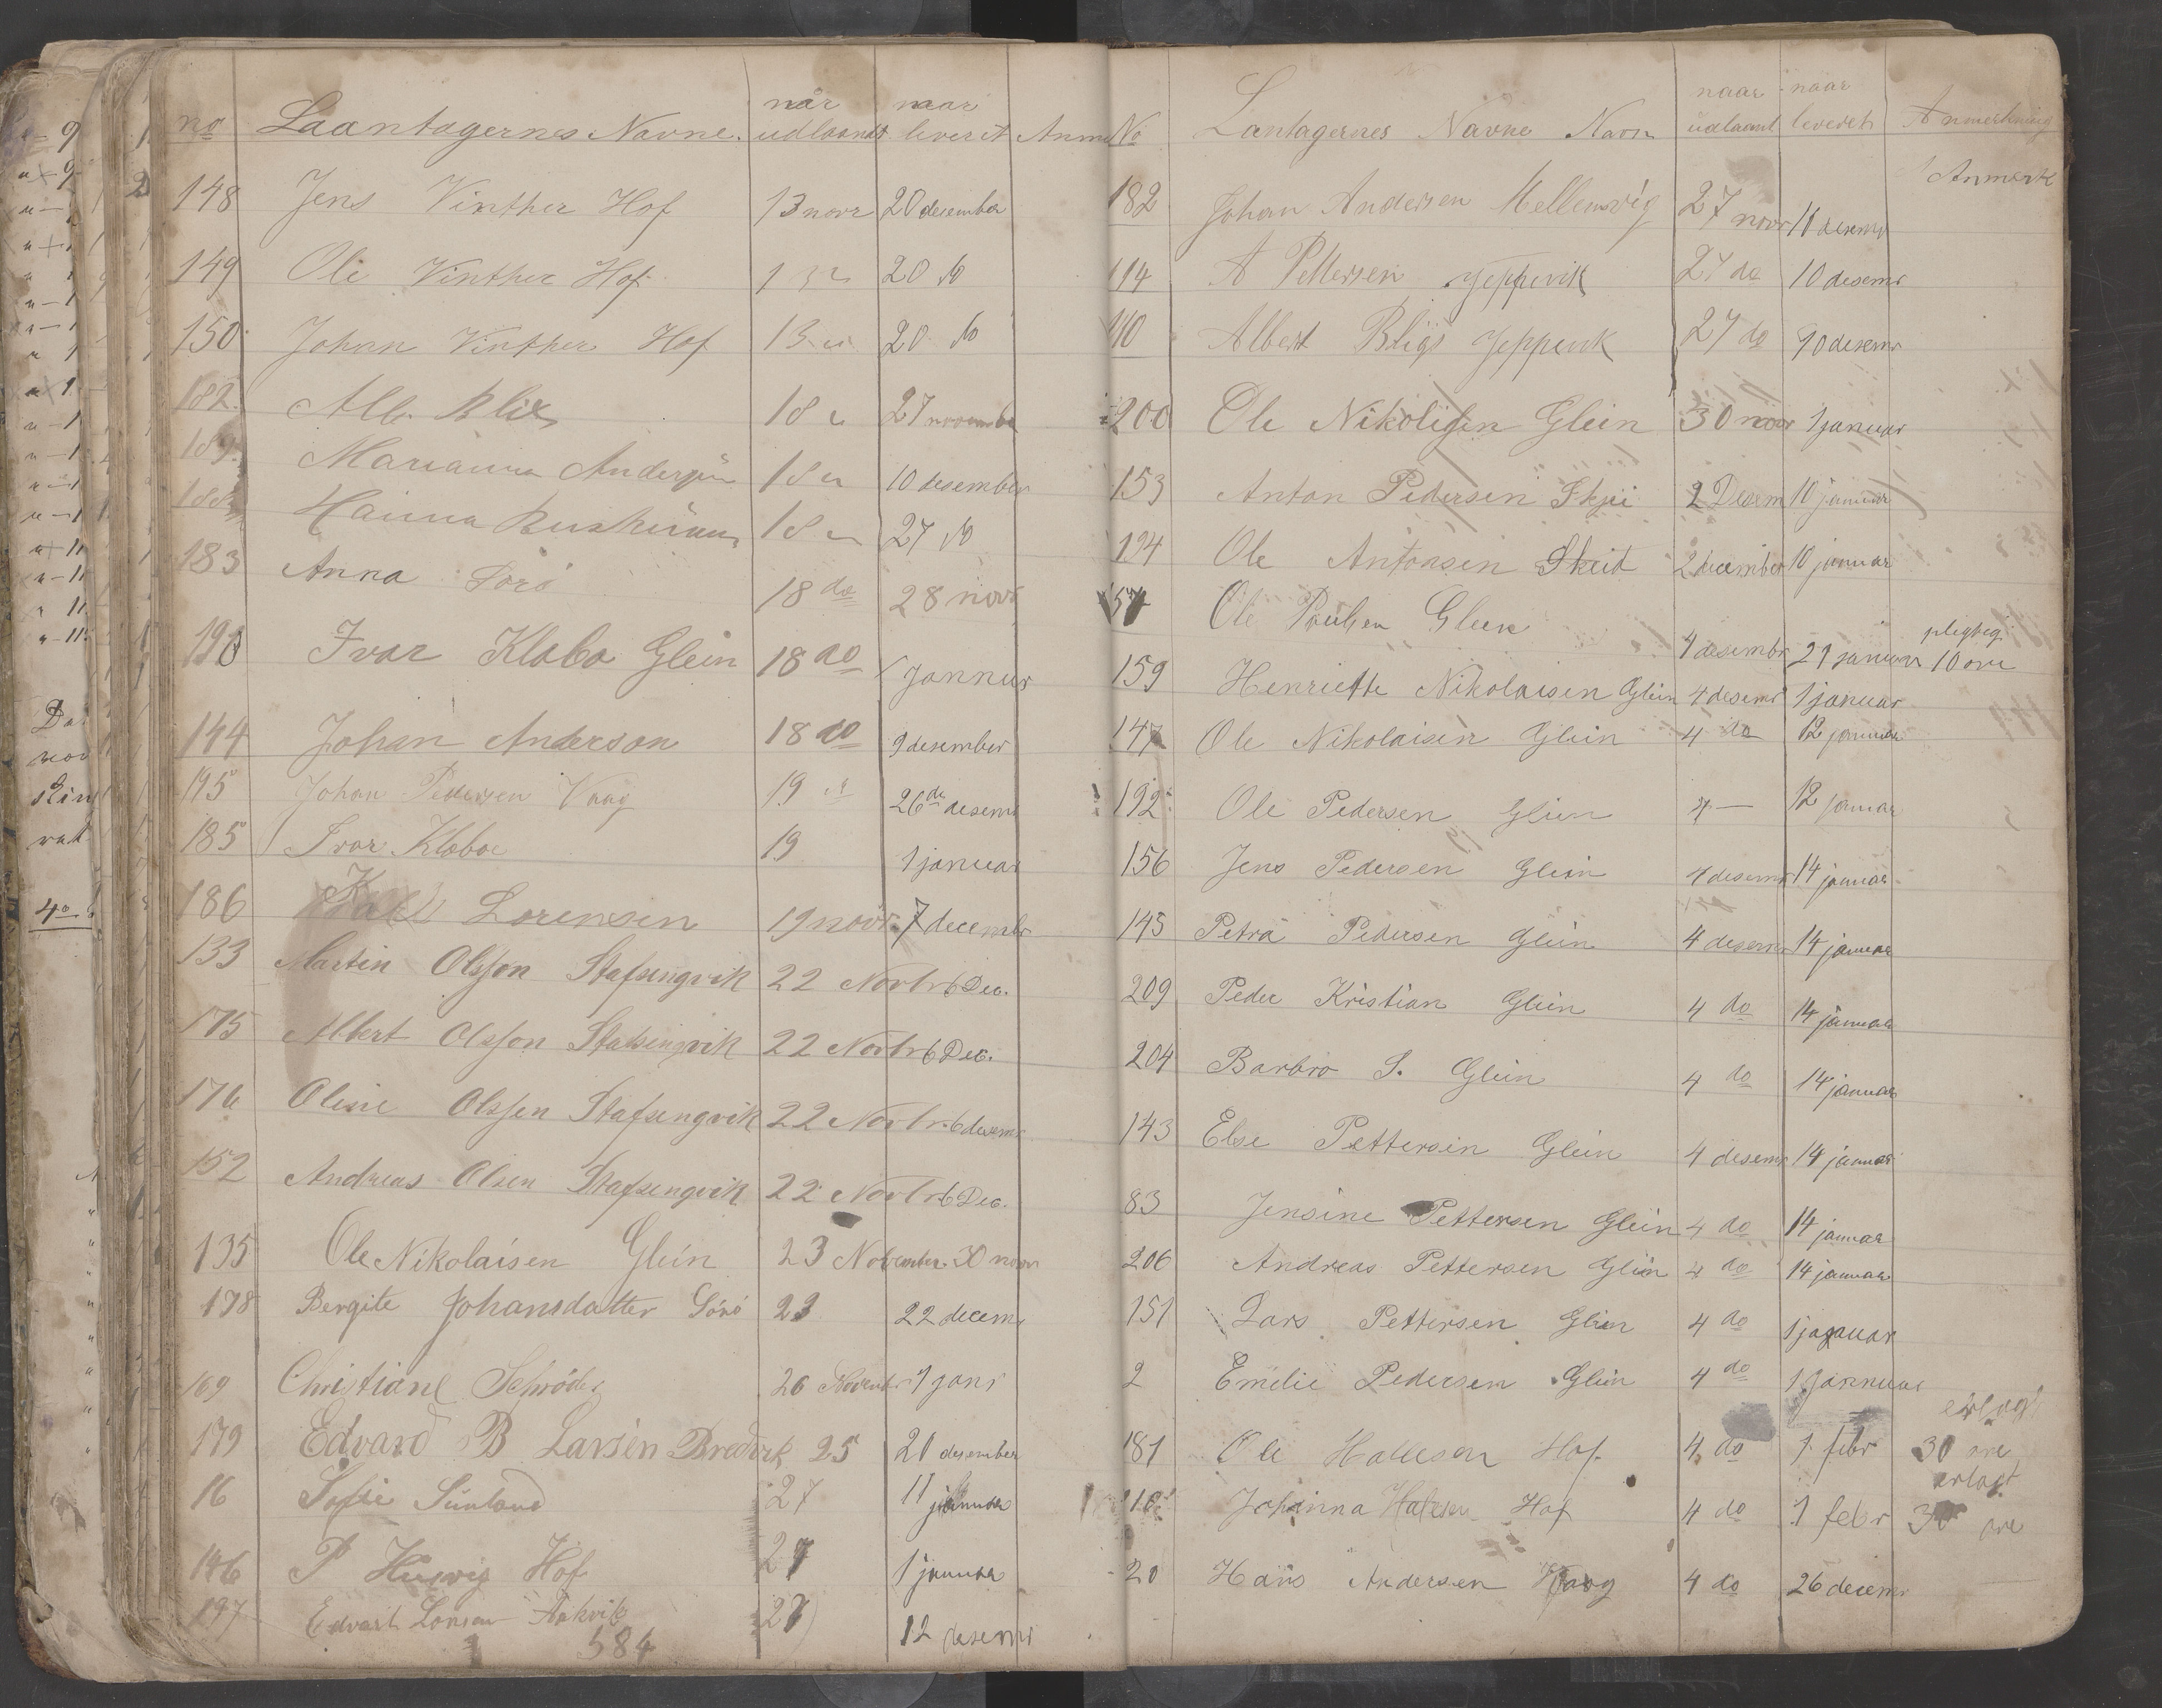 no Laantagernes Navne. når udlaandt naar leveret Anm
148 Jens Vinther Hof 13 novr 20 desember
149 Ole Vinther Hof 13 20 do
150 Johan Vinther Hof 13 20 do
182 Alb. Blix 18 27 november
189 Marianna Andersen 18 10 desember
188 Hanna 18 27 do
183 Anna Sörö 18 do 28 novr
190 Ivar Klabo Glein 18 do 1 Januar
144 Johan Anderson 18 do 9 desember
195 Johan Pedersen Vaag 19 26 de desemr
185 Ivar Kloboe 19 1 januar
186 Karl Lorensen 19 novr 7 decembr
133 Martin Olsson Stafsengvik 22 Novbr 6 Dec.
175 Albert Olsson Stafsengvik 22 Novbr 6 Dec.
176 Oline Olssen Stafsengvik 22 Novbr. 6 desemr
152 Andreas Olsen Stafsengvik 22 Novbr 6 Dec.
135 Ole Nikolaisen Glein 23 November 30 novr
178 Bergite Johansdatter Sörö 23 22 decemr
169 Christiane Schröder 26 Novembr 9 janr
179 Edvard B Larsen Bredvik 25 20 desember
16 Sofie Sünland 27 11 januar
146 P Hof 27 1 januar
197 Edvart Larsen 27 12 desemr
584
No Lantagernes Navne Navn naar udlaant naar leveret Anmerkning
Anmerk
182 Johan Andersen Mellemvig 27 novr 11 desemr
114 A Pettersen Jeppevik 27 do 10 desemr
110 Albert Jeppevik 27 do 10 desemr
200 Ole Nikolisen Glein 30 novr 1 januar
153 Anton Pedersen 2 Desem 10 januar
194 Ole Antonsen 2 december 10 januar
57 Ole Paulsen Glein 4 desembr 21 januar pligtig 10 öre
159 Henriette Nikolaisen Glein 4 desemr 1 januar
147 Ole Nikolaisen Glein 4 do 12 januar
192 Ole Pedersen Glein 4 — 12 januar
156 Jens Pedersen Glein 4 desemr 14 januar
145 Petra Pedersen Glein 4 desemr 14 januar
209 Peder Kristian Glein 4 do 14 januar
204 Barbro S. Glein 4 do 14 januar
143 Else Pettersen Glein 4 desemr 14 januar
83 Jensine Pettersen Glein 4 do 14 januar
206 Andreas Pettersen Glein 4 do 14 januar
151 Lars Pettersen Glein 4 do 1 januar
2 Emelie Pedersen Glein 4 do 1 jannuar
181 Ole Hallesen Hof. 4 do 1 febr erlagt 30 øre
116 Johanna Halesen Hof 4 do 1 febr erlagt 30 øre
20 Hans Andersen Vaag 4 do 26 decemr